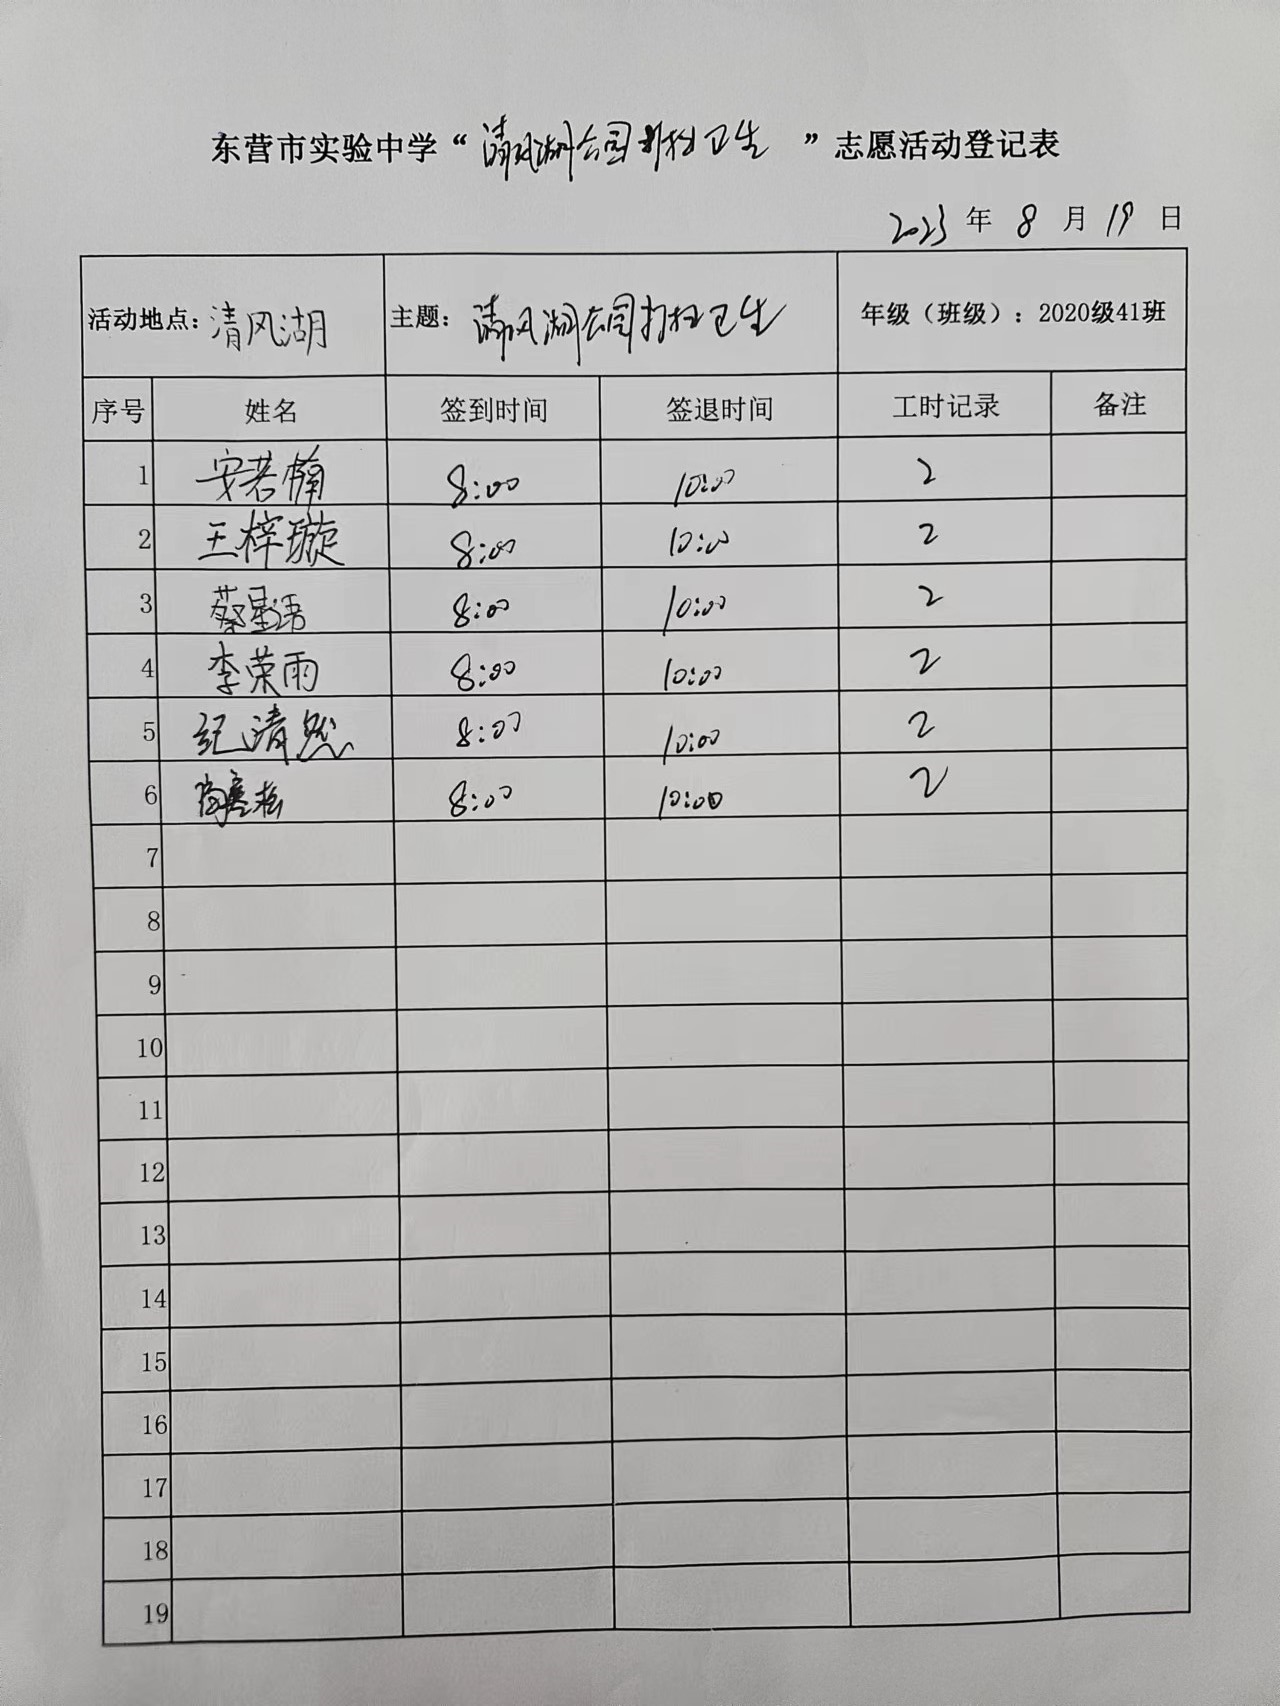 东营市实验中学“清风湖公园打扫卫生”志愿活动登记表
2023年8月19日
活动地点：清风湖 主题：清风湖公园打扫卫生 年级（班级）：2020级41班
序号 姓名 签到时间 签退时间 工时记录 备注
1 安若楠 8:00 10:00 2
2 王梓璇 8:00 10:00 2
3 蔡星语 8:00 10:00 2
4 李荣雨 8:00 10:00 2
5 纪清然 8:00 10:00 2
6 8:00 10:00 2
7
8
9
10
11
12
13
14
15
16
17
18
19